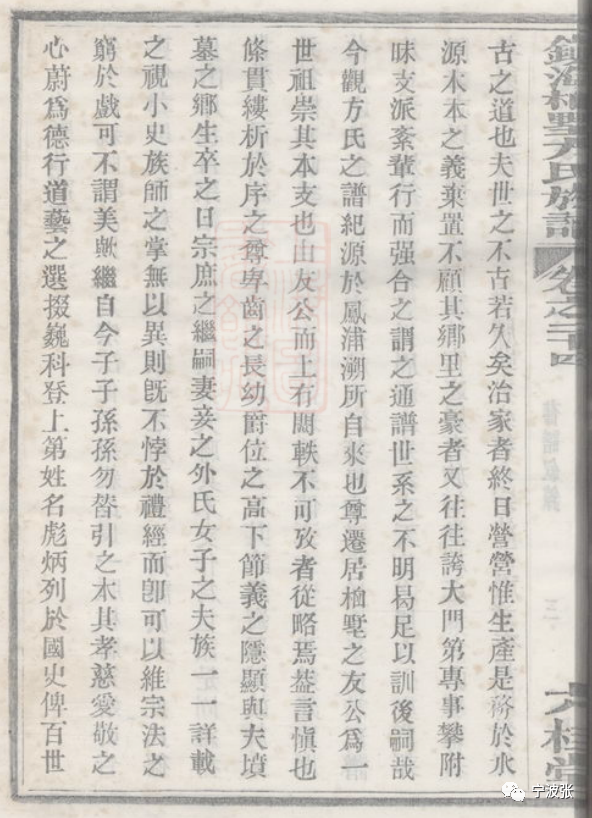 鎮海柏墅方氏族譜 卷之二十四
舊譜敘錄
三
六桂堂
古之道也夫世之不古若久矣治家者終日營營惟生產是務於水
源木本之義棄置不顧其鄉里之豪者又往往誇大門第專事攀附
昧支派紊輩行而强合之謂之通譜世系之不明曷足以訓後嗣哉
今觀方氏之譜紀源於鳳浦溯所自來也尊遷居柏墅之友公爲一
世祖崇其本支也由友公而上有闕軼不可攷者從略焉葢言愼也
條貫縷析於序之尊卑齒之長幼爵位之高下節義之隱顯與夫墳
墓之鄉生卒之日宗庶之繼嗣妻妾之外氏女子之夫族一一詳載
之視小史族師之掌無以異則既不悖於禮經而卽可以維宗法之
窮於戲可不謂美歟繼自今子子孫孫勿替引之本其孝慈愛敬之
心蔚爲德行道藝之選掇巍科登上第姓名彪炳列於國史俾百世
宁波张